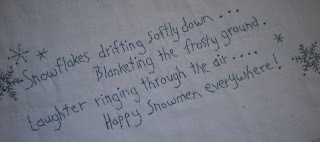 Snowflakes drifting softly down...
Blanketing the frosty ground.
Laughter ringing through the air....
Happy Snowmen everywhere!